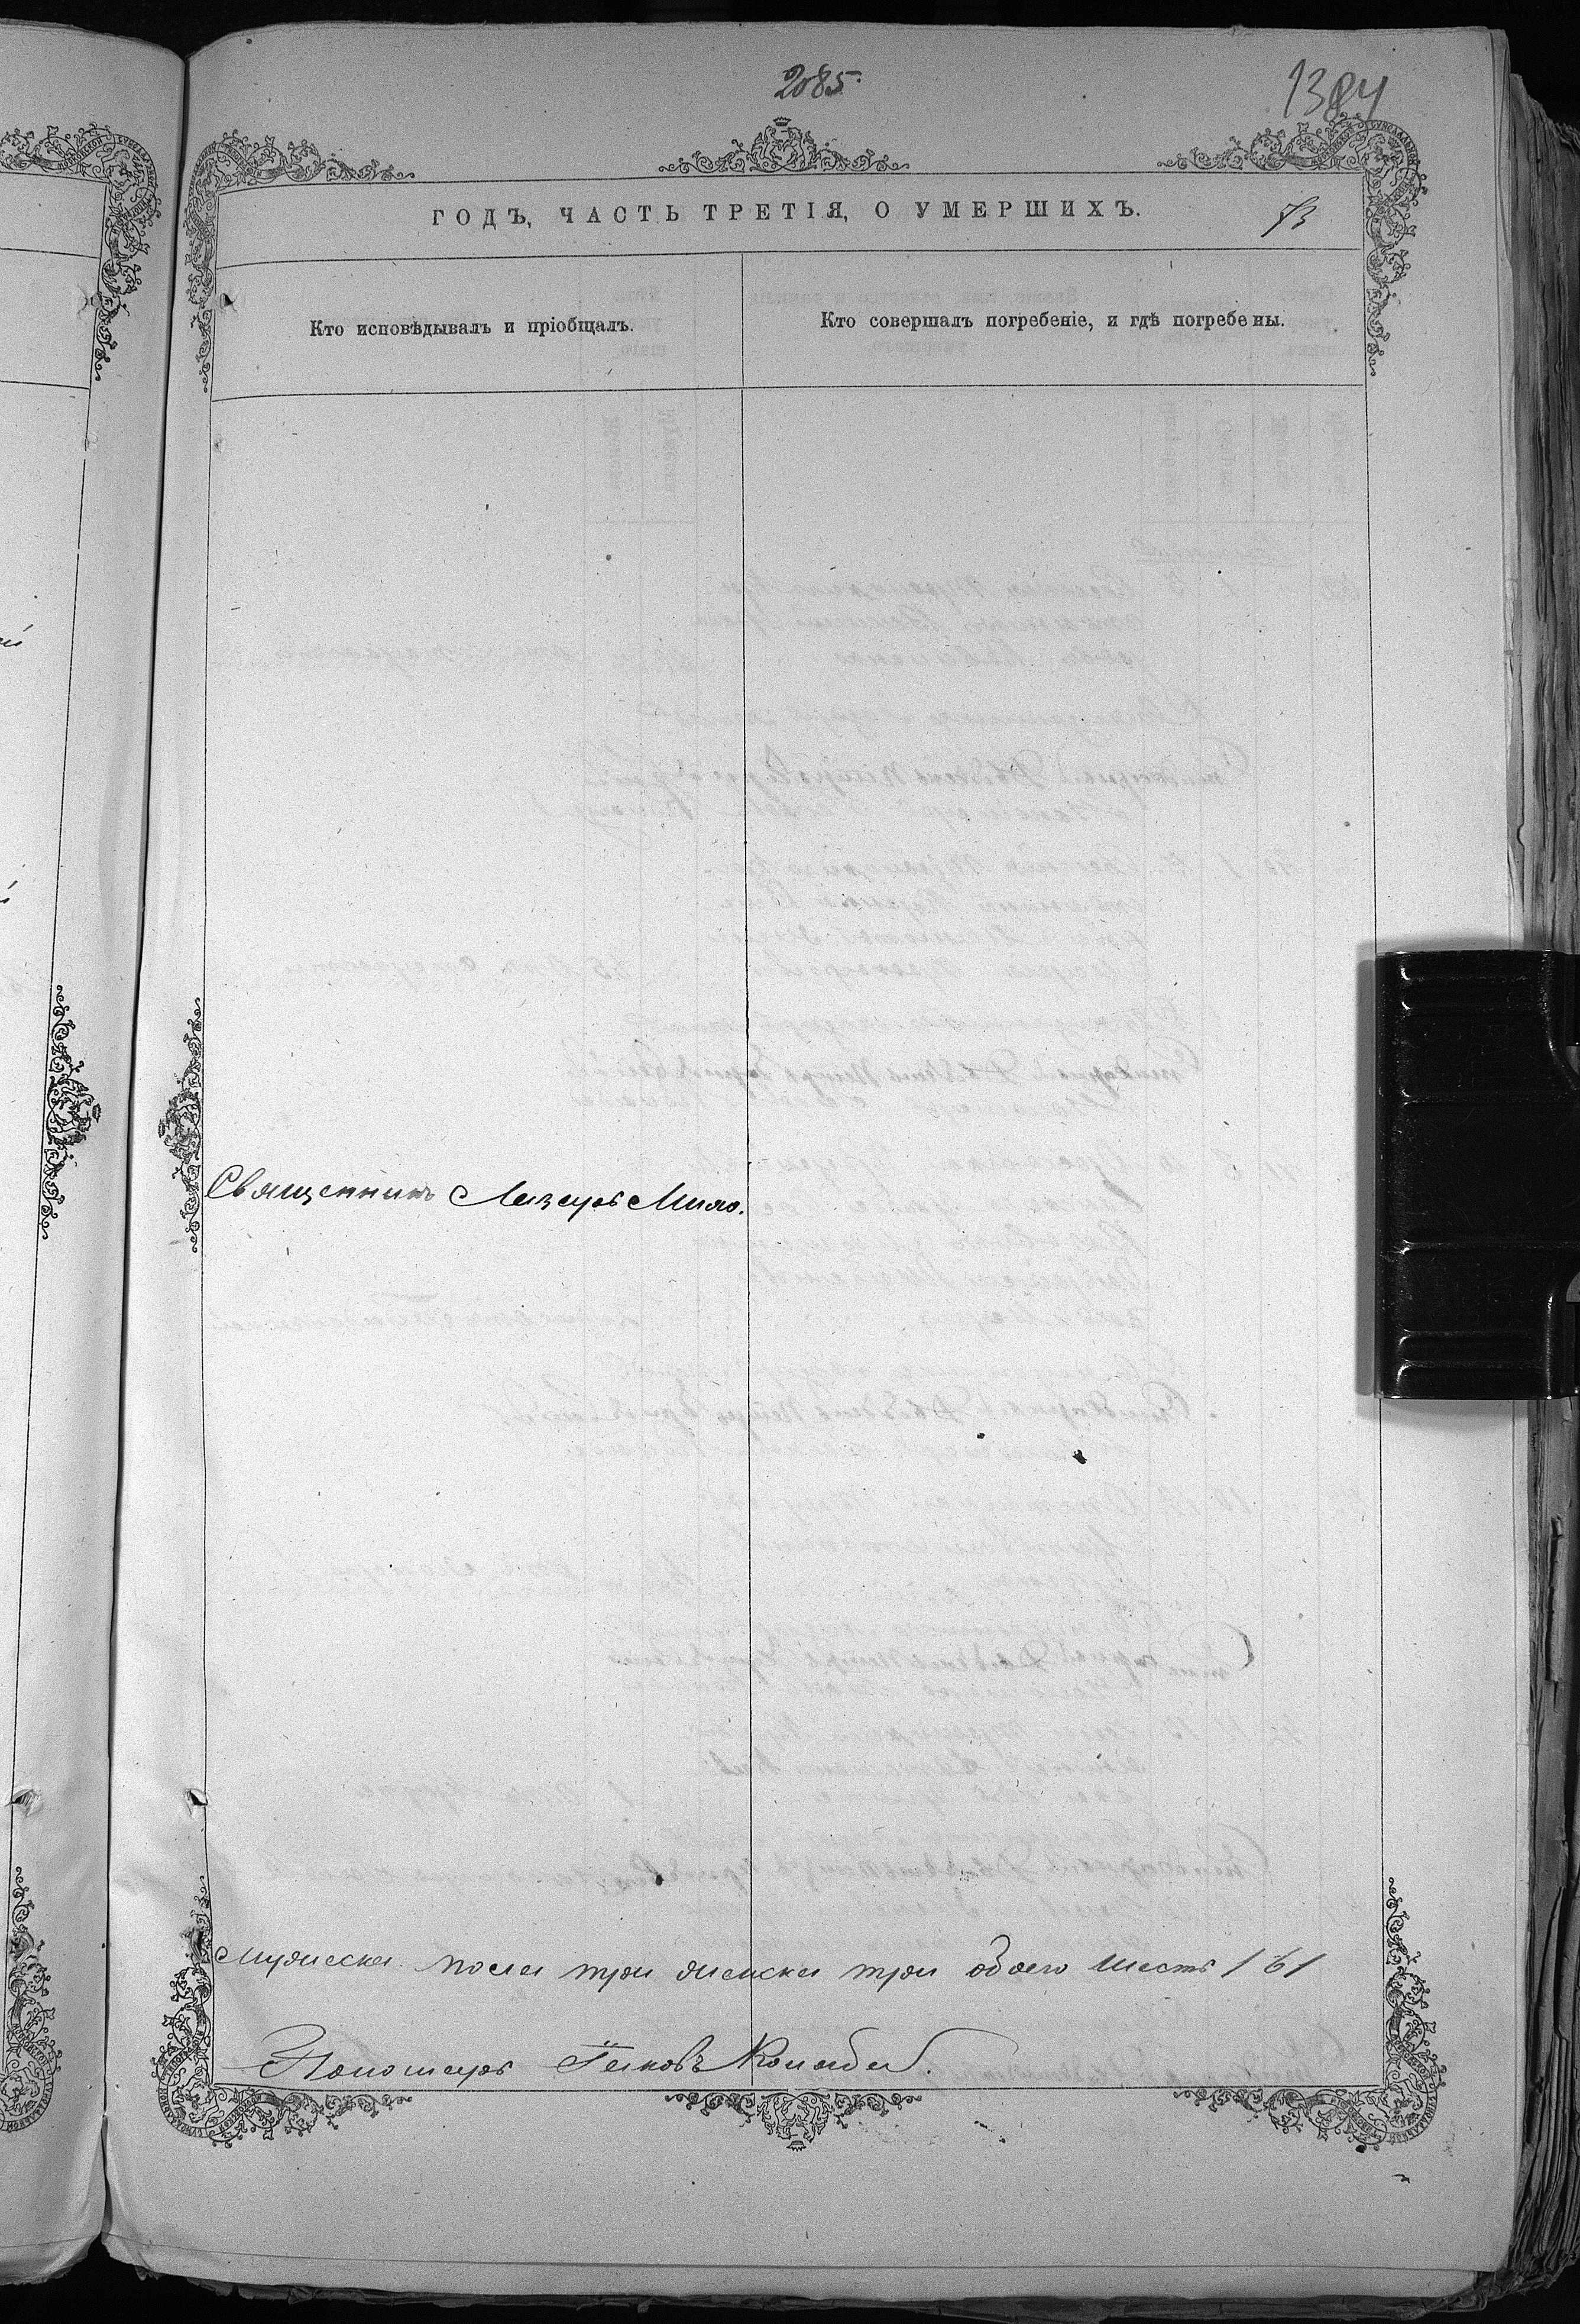 2085.
1384
ГОДЪ, ЧАСТЬ ТРЕТІЯ, О УМЕРШИХЪ.
73
Кто исповѣдывалъ и пріобщалъ.
Кто совершалъ погребеніе, и гдѣ погребены.
Священникъ Лазарь
Мужеска пола три женска три обоего шесть / 6 /
Пономарь Іяковъ